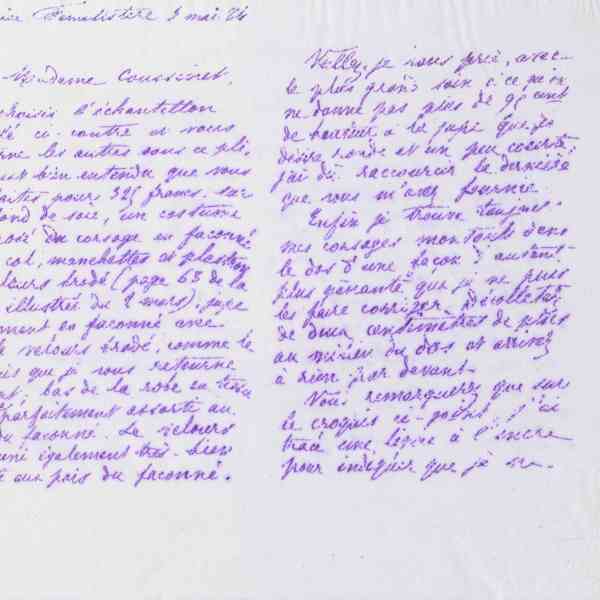 3 mai 24
Madame Coussinet,
choisis l'échantillon
ci-contre et vous
les autres sous ce pli.
bien entendu que vous
pour 325 francs, sur
fond de soie, un costume
du corsage en façonné
col, manchettes et plastron
velours brodé (page 63 de la
illustré du 2 mars), jupe
en façonné avec
velours brodé, comme le
que je vous retourne
bas de la robe en tissu
parfaitement assorti au
du façonné. Le velours
uni également très bien
aux pois du façonné.
Veillez, je vous prie, avec
le plus grand soin à ce qu'on
ne donne pas plus de 95 cent
de hauteur à la jupe que je
désire ronde et un peu courte;
j'ai dû raccourcir la dernière
que vous m'avez fournie.
Enfin je trouve toujours
mes corsages montant dans
le dos d'une façon d'autant
plus gênante que je ne puis
les faire corriger. Décolletez
de deux centimètres de plus
au milieu du dos et arrivez
à rien par devant.
Vous remarquerez que sur
le croquis ci-joint j'ai
tracé une ligne à l'encre
pour indiquer que je ne